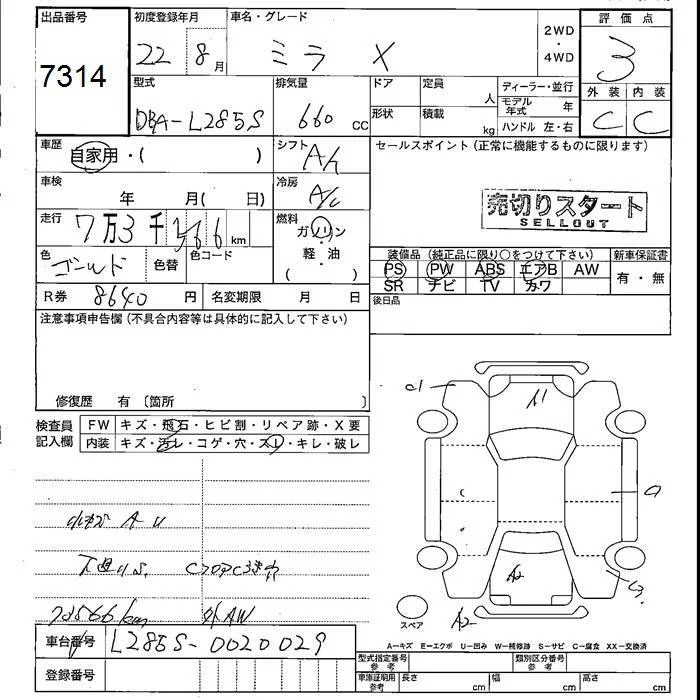 出品番号 初度登録年月 車名・グレード 2WD ・ 4WD 評価点
7314 22 8月 ミラ X 3
型式 排気量 ドア 定員 人 ディーラー・並行 外装 内装
DBA-L285S 660 cc 形状 積載 kg モデル年式 年 C C
ハンドル 左・右
車歴 自家用・( ) シフト A/t セールスポイント(正常に機能するものに限ります)
車検 年 月( 日) 冷房 A/C
売切りスタート
SELLOUT
走行 7万3千566km 燃料 ガソリン・軽・油 ( )
色 ゴールド 色替 色コード
装備品(純正品に限り○をつけて下さい) 新車保証書
PS PW ABS エアB AW 有・無
SR ナビ TV カワ
R券 8640円 名変期限 月 日 後日品
注意事項申告欄(不具合内容等は具体的に記入して下さい)
修復歴 有〔箇所 〕
検査員記入欄 FW キズ・飛石・ヒビ割・リペア跡・X要
内装 キズ・汚レ・コゲ・穴・スレ・キレ・破レ
A U
73566km 外AW
車台番号 L285S-0020029
登録番号
A1
A2
A2
スペア
A-キズ E-エクボ U-凹み W-補修跡 S-サビ C-腐食 XX-交換済
型式指定番号 参考 類別区分番号 参考
車庫証明用 参考 長さ cm 幅 cm 高さ cm